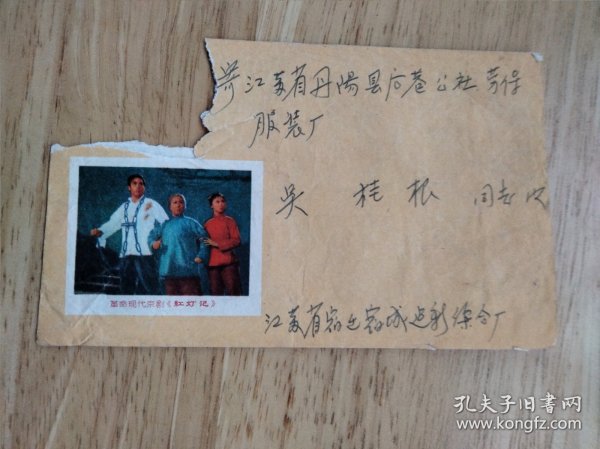 寄江苏省丹陽县后巷公社劳保
服装厂
吴桂根同志收
革命现代京剧《红灯记》
江苏省宿迁宿城送新综合厂
孔夫子旧书网
www.kongfz.com